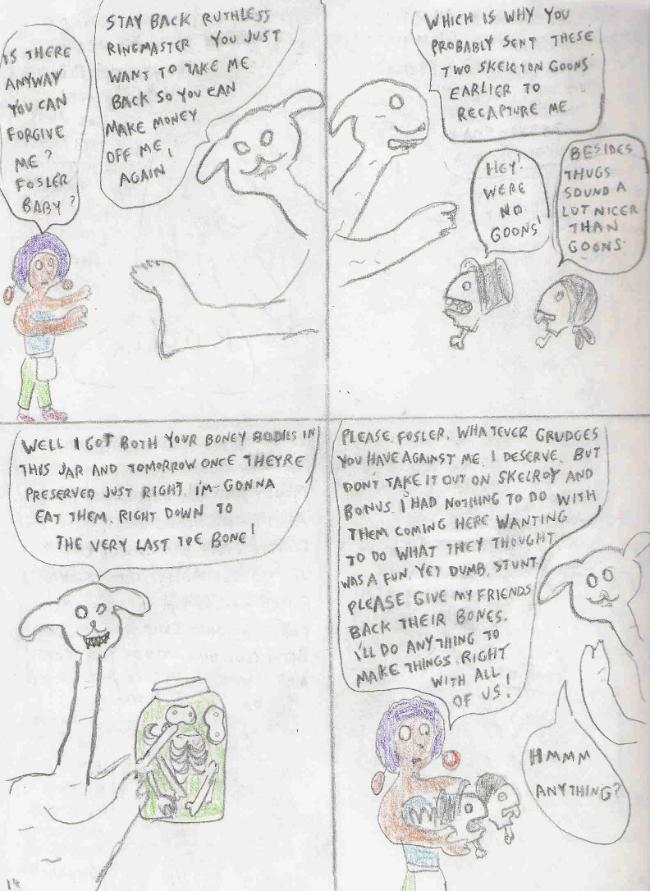 IS THERE
ANYWAY
YOU CAN
FORGIVE
ME?
FOSLER
BABY?
STAY BACK RUTHLESS
RINGMASTER YOU JUST
WANT TO TAKE ME
BACK SO YOU CAN
MAKE MONEY
OFF ME,
AGAIN
WHICH IS WHY YOU
PROBABLY SENT THESE
TWO SKELETON GOONS
EARLIER TO
RECAPTURE ME
HEY!
WERE
NO
GOONS!
BESIDES
THUGS
SOUND A
LOT NICER
THAN
GOONS.
WELL I GOT BOTH YOUR BONEY BODIES IN
THIS JAR AND TOMORROW ONCE THEYRE
PRESERVED JUST RIGHT. I'M GONNA
EAT THEM. RIGHT DOWN TO
THE VERY LAST TOE BONE!
PLEASE, FOSLER, WHATEVER GRUDGES
YOU HAVE AGAINST ME, I DESERVE. BUT
DON'T TAKE IT OUT ON SKELROY AND
BONUS. I HAD NOTHING TO DO WITH
THEM COMING HERE WANTING
TO DO WHAT THEY THOUGHT
WAS A FUN, YET DUMB, STUNT.
PLEASE GIVE MY FRIENDS
BACK THEIR BONES.
I'LL DO ANYTHING TO
MAKE THINGS RIGHT
WITH ALL
OF US!
HMMM
ANYTHING?
14